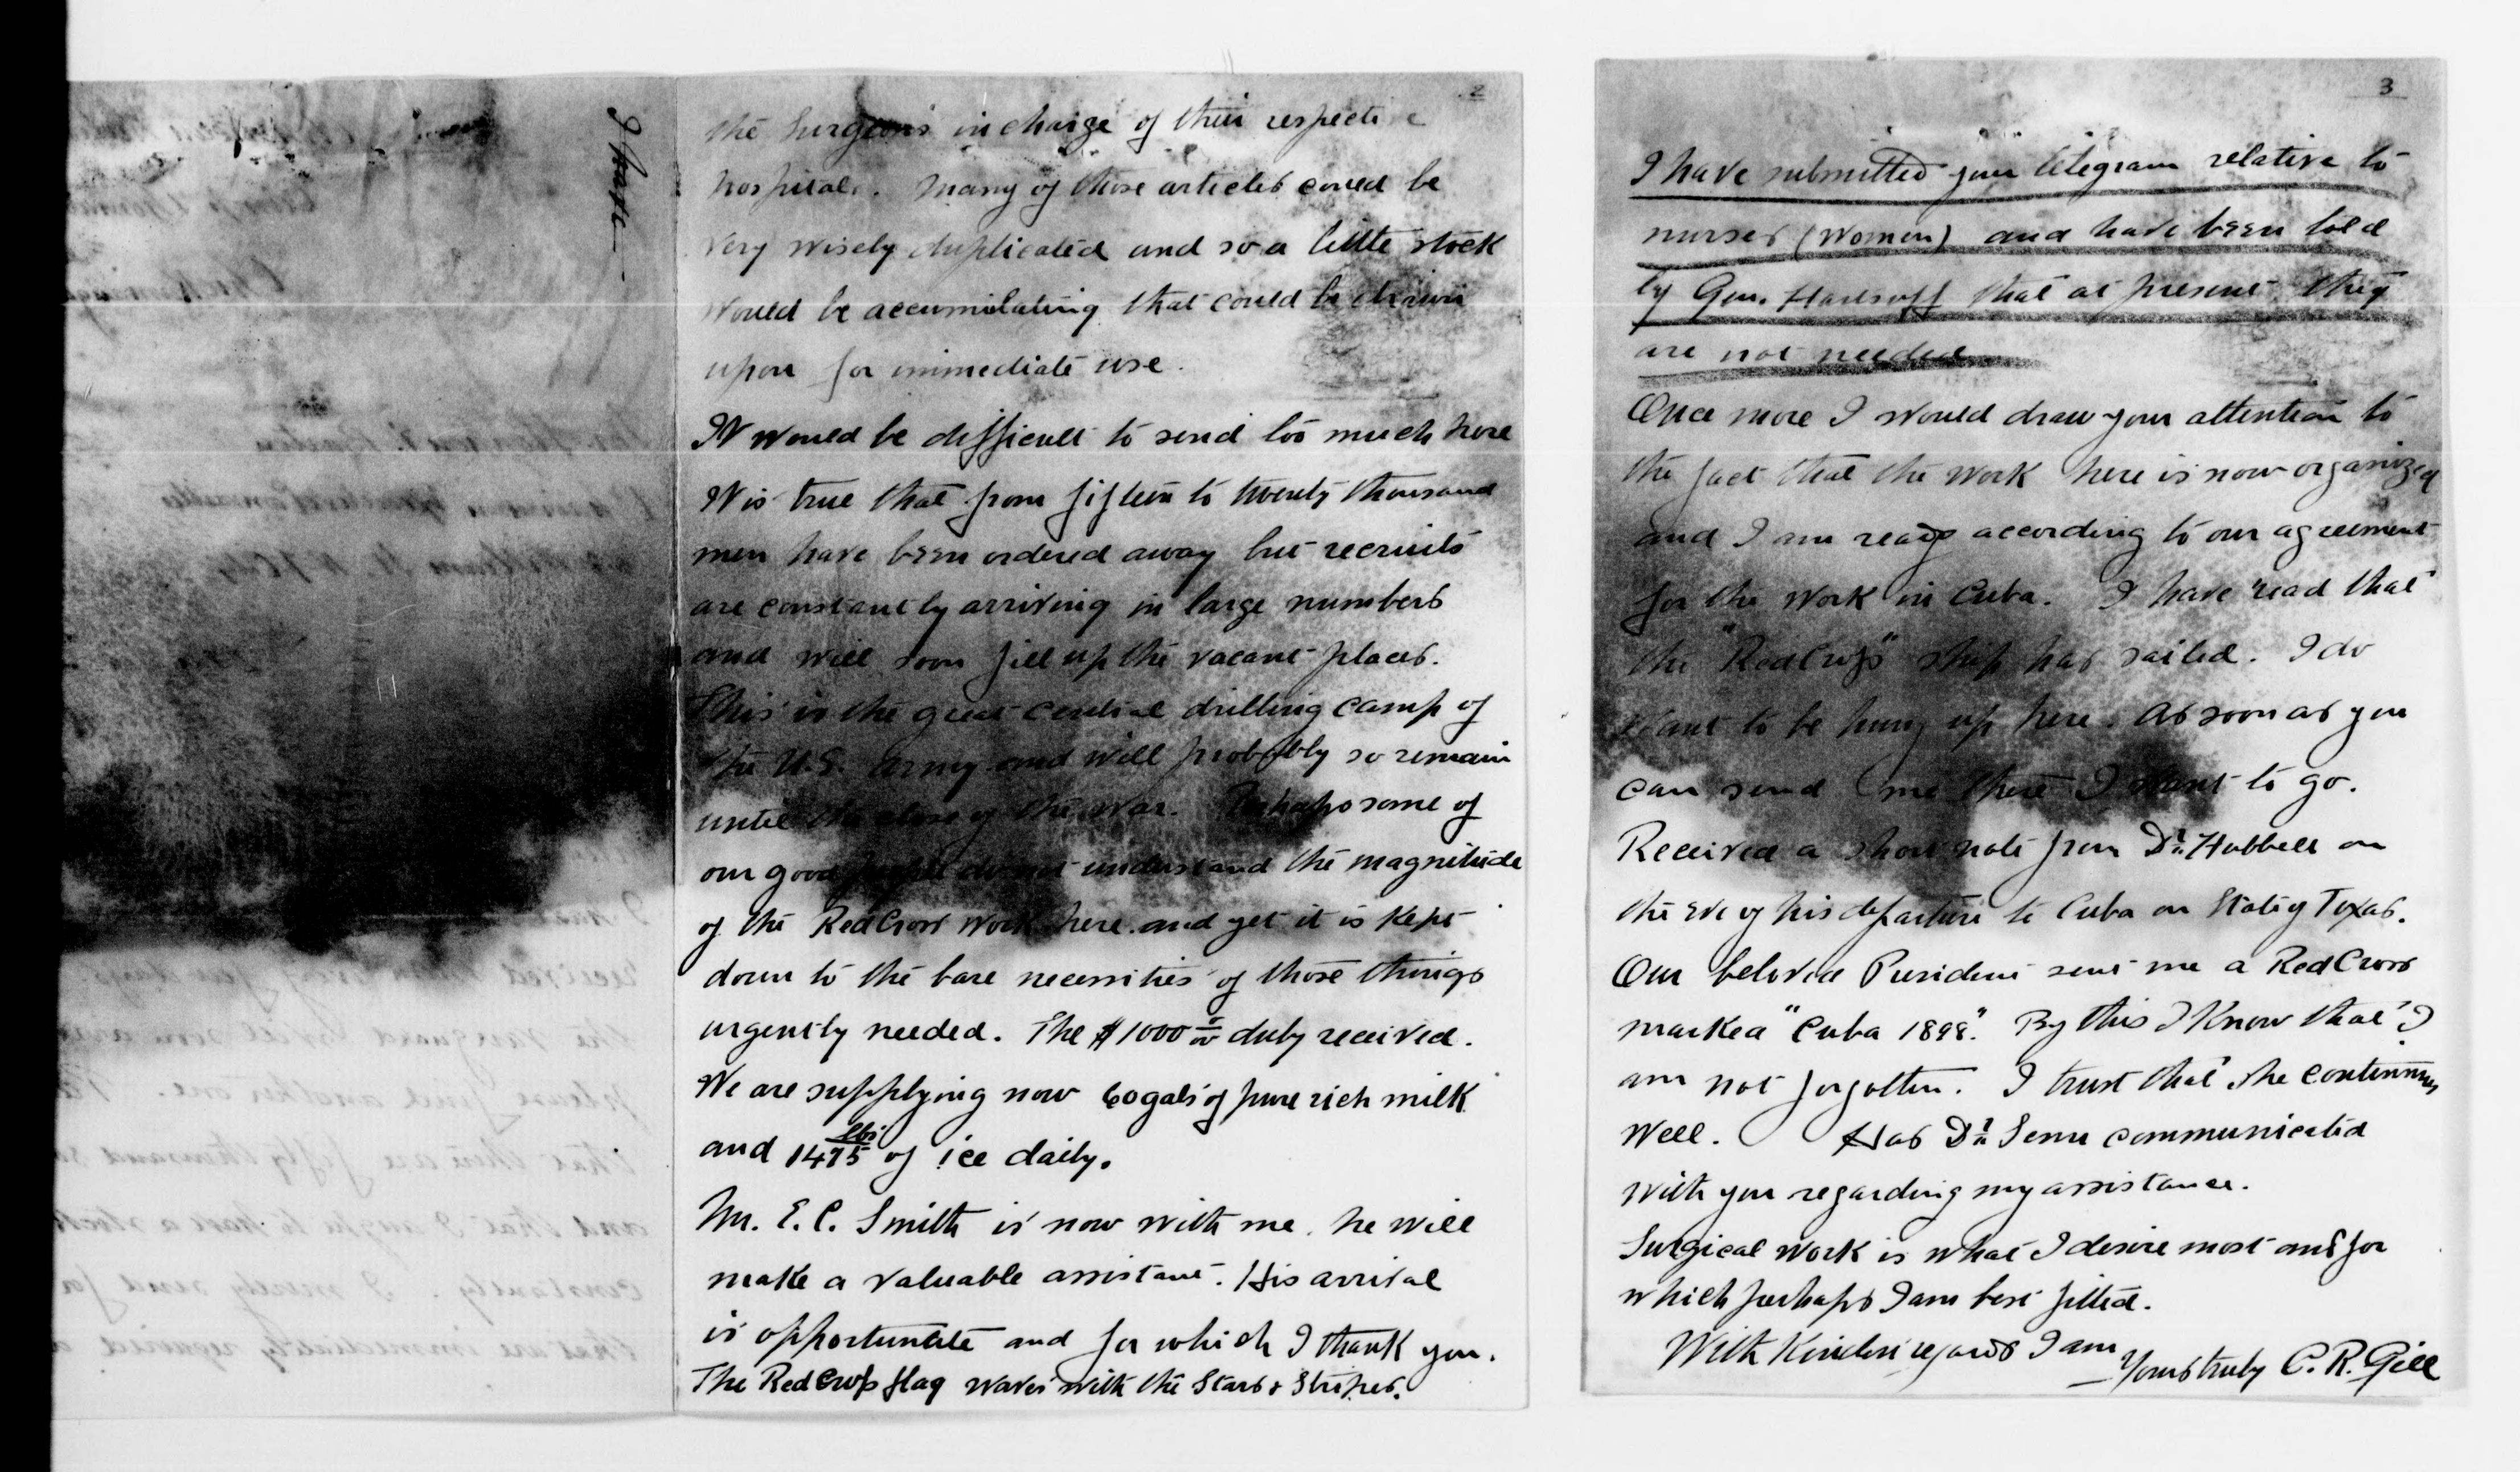 2
the Surgeons in charge of their respective
hospitals. Many of those articles could be
very wisely duplicated and so a little stock
would be accumilating that could be drawn
upon for immediate use.
It would be difficult to send too much here
It is true that from fifteen to twenty thousand
men have been ordered away but recruits
are constantly arriving in large numbers
and will soon fill up the vacant places.
This is the great central drilling camp of
the U.S. Army and will probably so remain
until the close of the war. Perhaps some of
our good people do not understand the magnitude
of the Red Cross work here and yet it is kept
down to the bare necessities of those things
urgently needed. The $1000 00 duly received.
We are supplying now 60 gals of pure rich milk
and 1475 lbs of ice daily.
Mr. E. C. Smith is now with me. he will
make a valuable assistant. His arrival
is opportunate and for which I thank you.
The Red Cross flag waves with the Stars & Stripes.
3
I have submitted your telegram relative to
nurses (women) and have been told
by Gen. that at present they
are not needed
Once more I would draw your attention to
the fact that the work here is now organized
and I am ready according to our agreement
for the work in Cuba. I have read that
the "Red Cross" ship has sailed. I do
want to be hung up here. As soon as you
can send me there I want to go.
Received a short note from Dr. Hubbell on
the eve of his departure to Cuba on State of Texas.
Our beloved President sent me a Red Cross
marked "Cuba 1898". By this I know that I
am not forgotten. I trust that she continues
well. Has Dr. Senn communicated
with you regarding my assistance.
Surgical work is what I desire most and for
which perhaps I am best fitted.
With kindest regards I am
Yours truly C. R. Gill